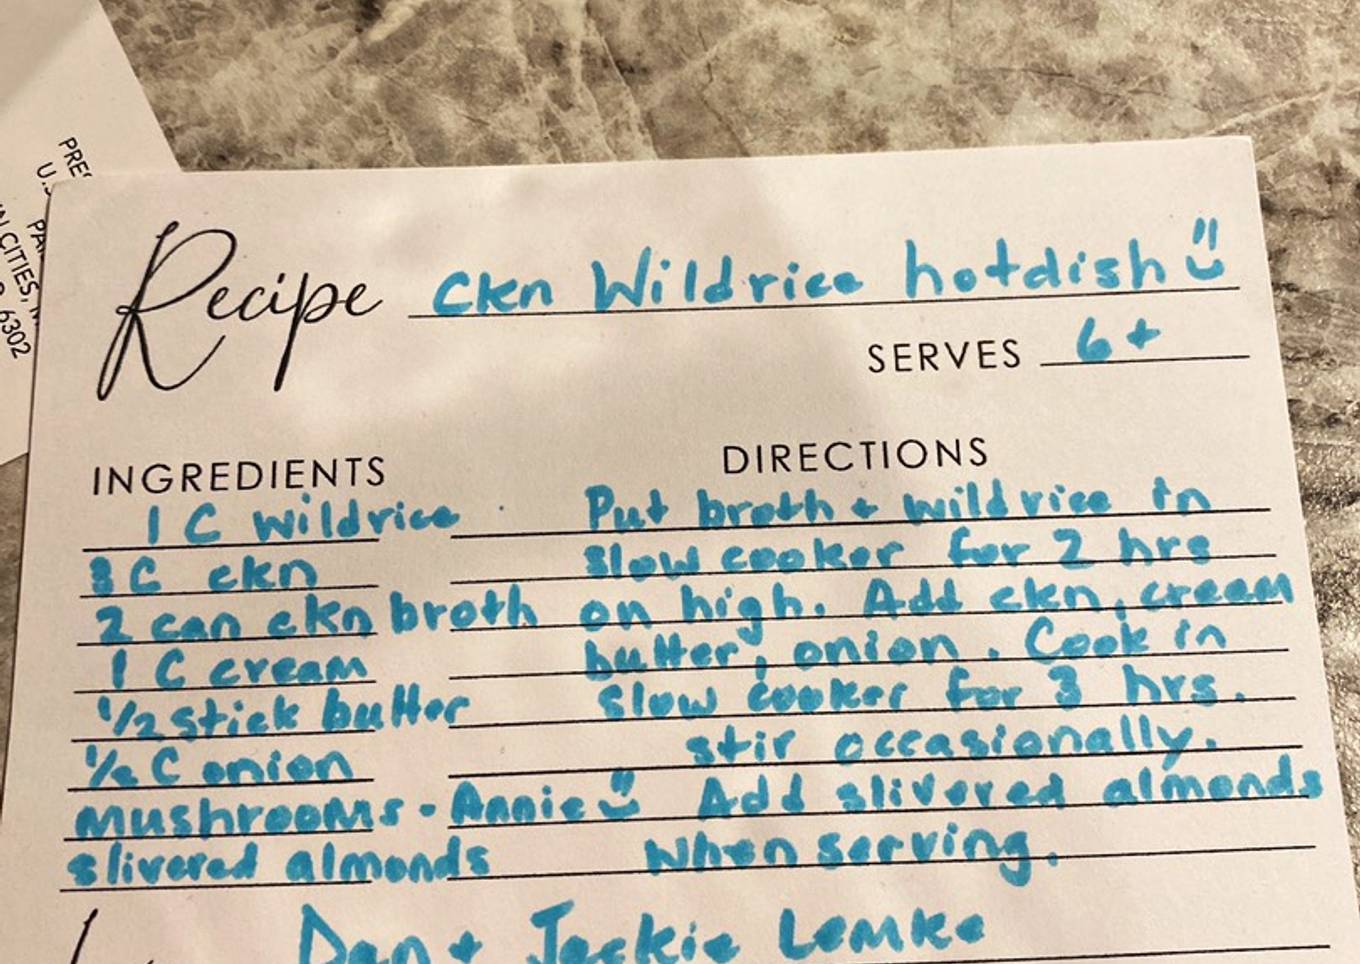 PRES
U.S
PA
N CITIES, M
6302
Recipe Ckn Wildrice hotdish
SERVES 6+
INGREDIENTS
1 C wildrice
3 C ckn
2 can ckn broth
1 C cream
1/2 stick butter
1/2 C onion
mushrooms - Annie
slivered almonds
DIRECTIONS
Put broth + wildrice in
slow cooker for 2 hrs
on high. Add ckn, cream
butter, onion. Cook in
slow cooker for 3 hrs.
stir occasionally.
Add slivered almonds
when serving.
Dan + Jackie Lemke